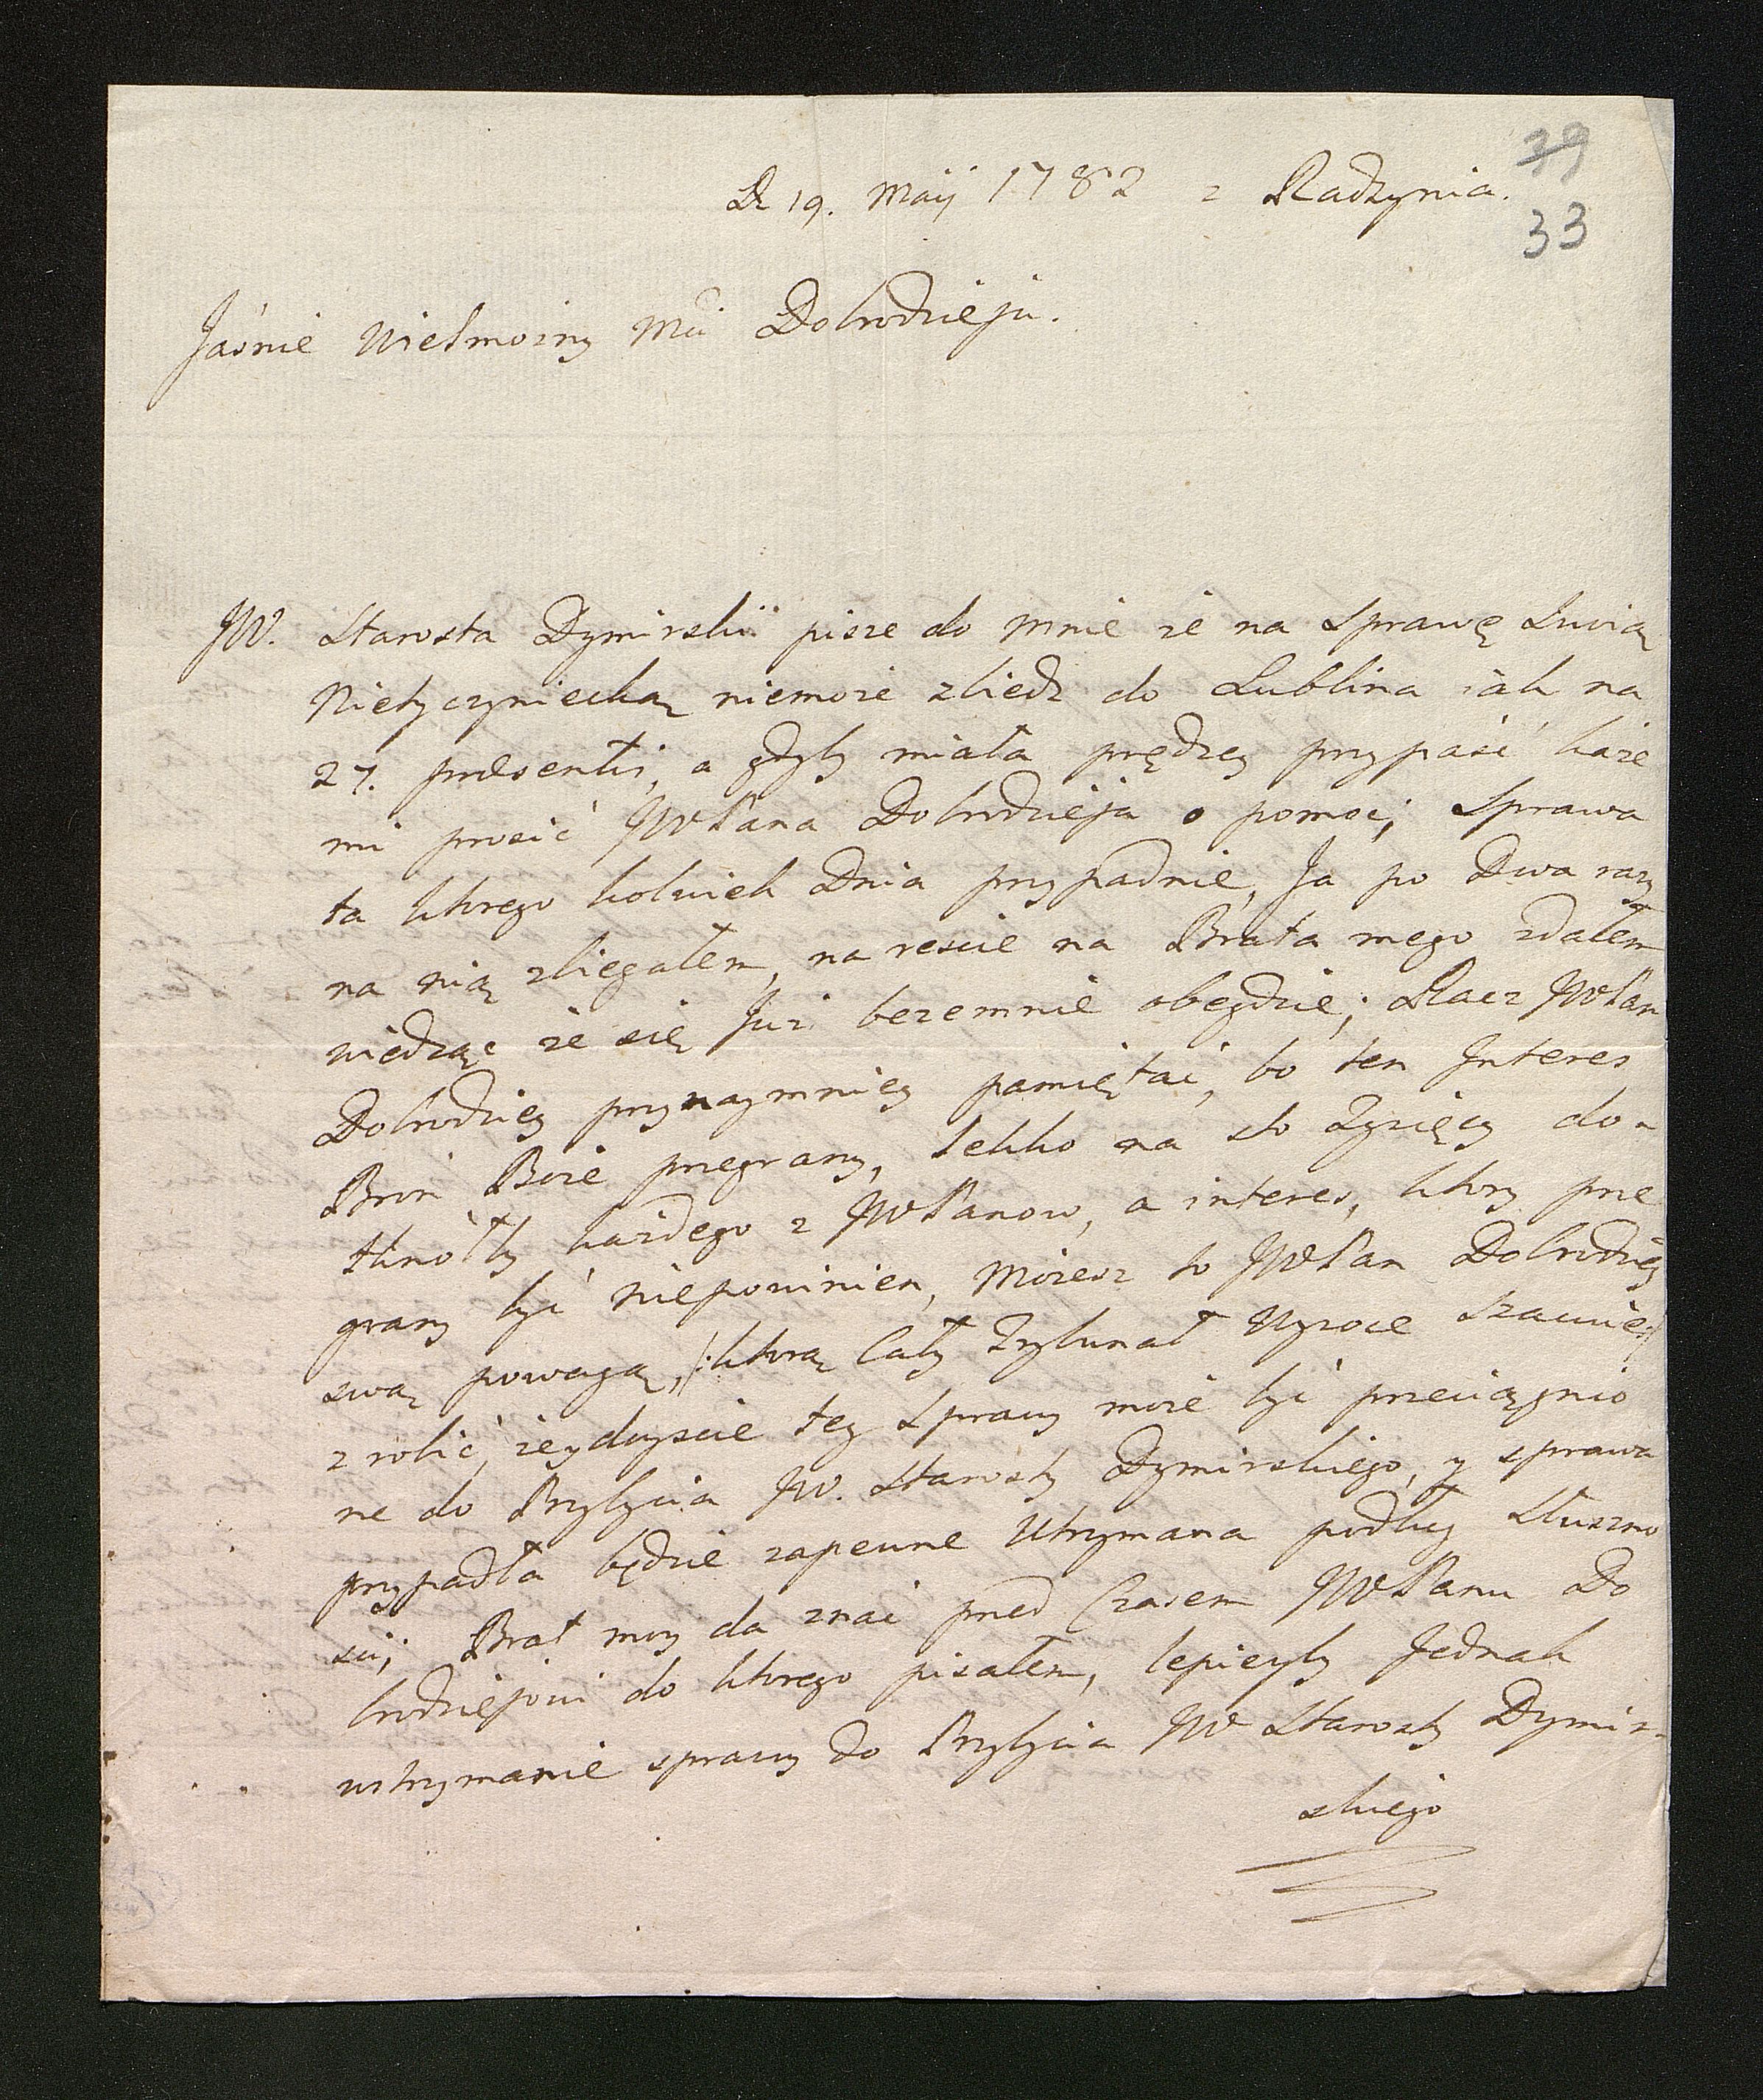 39
D 19. Maij 1782 z Radzynia.
33
Jaśnie Wielmożny Mci Dobrodzieju.
JW. Starosta Dymirskii pisze do mnie że na Sprawę Swią
Nietyczyniecką niemoże zbiedz do Lublina iak na
27. præsentis, a gdyby miała prędzey przypaść każe
mi prosić JWPana Dobrodzieja o pomoc; Sprawa
ta ktorego kolwiek Dnia przypadnie, Ja po Dwa razy
na nią zbiegałem, na resscie na Brata mego zdałem
wiedząc że się Już bezemnie obeydzie; Racz JWPan
Dobrodziey przynaymniey pamiętać, bo ten Interes
Broń Boże przegrany, lekko na sto Tysięcy do-
tknoł by każdego z JWPanow, a interes, ktory prze
grany być niepowinien, Możesz to JWPan Dobrodziey
swą powagą, /:ktorą Cały Trybunał Wysoce Szacuie:/
zrobić, że ydwyscie tey Sprawy może być przeciągnio
ne do Przybycia JW. Starosty Dymirskiego, y sprawa
przypadła będzie zapewne Utrzymana podług Słuszno
sci; Brat moy da znać przed Czasem JWPanu Do
brodziejowi do ktorego pisałem, lepieyby Jednak
wstrzymanie sprawy do Przybycia JW Starosty Dymir-
skiego